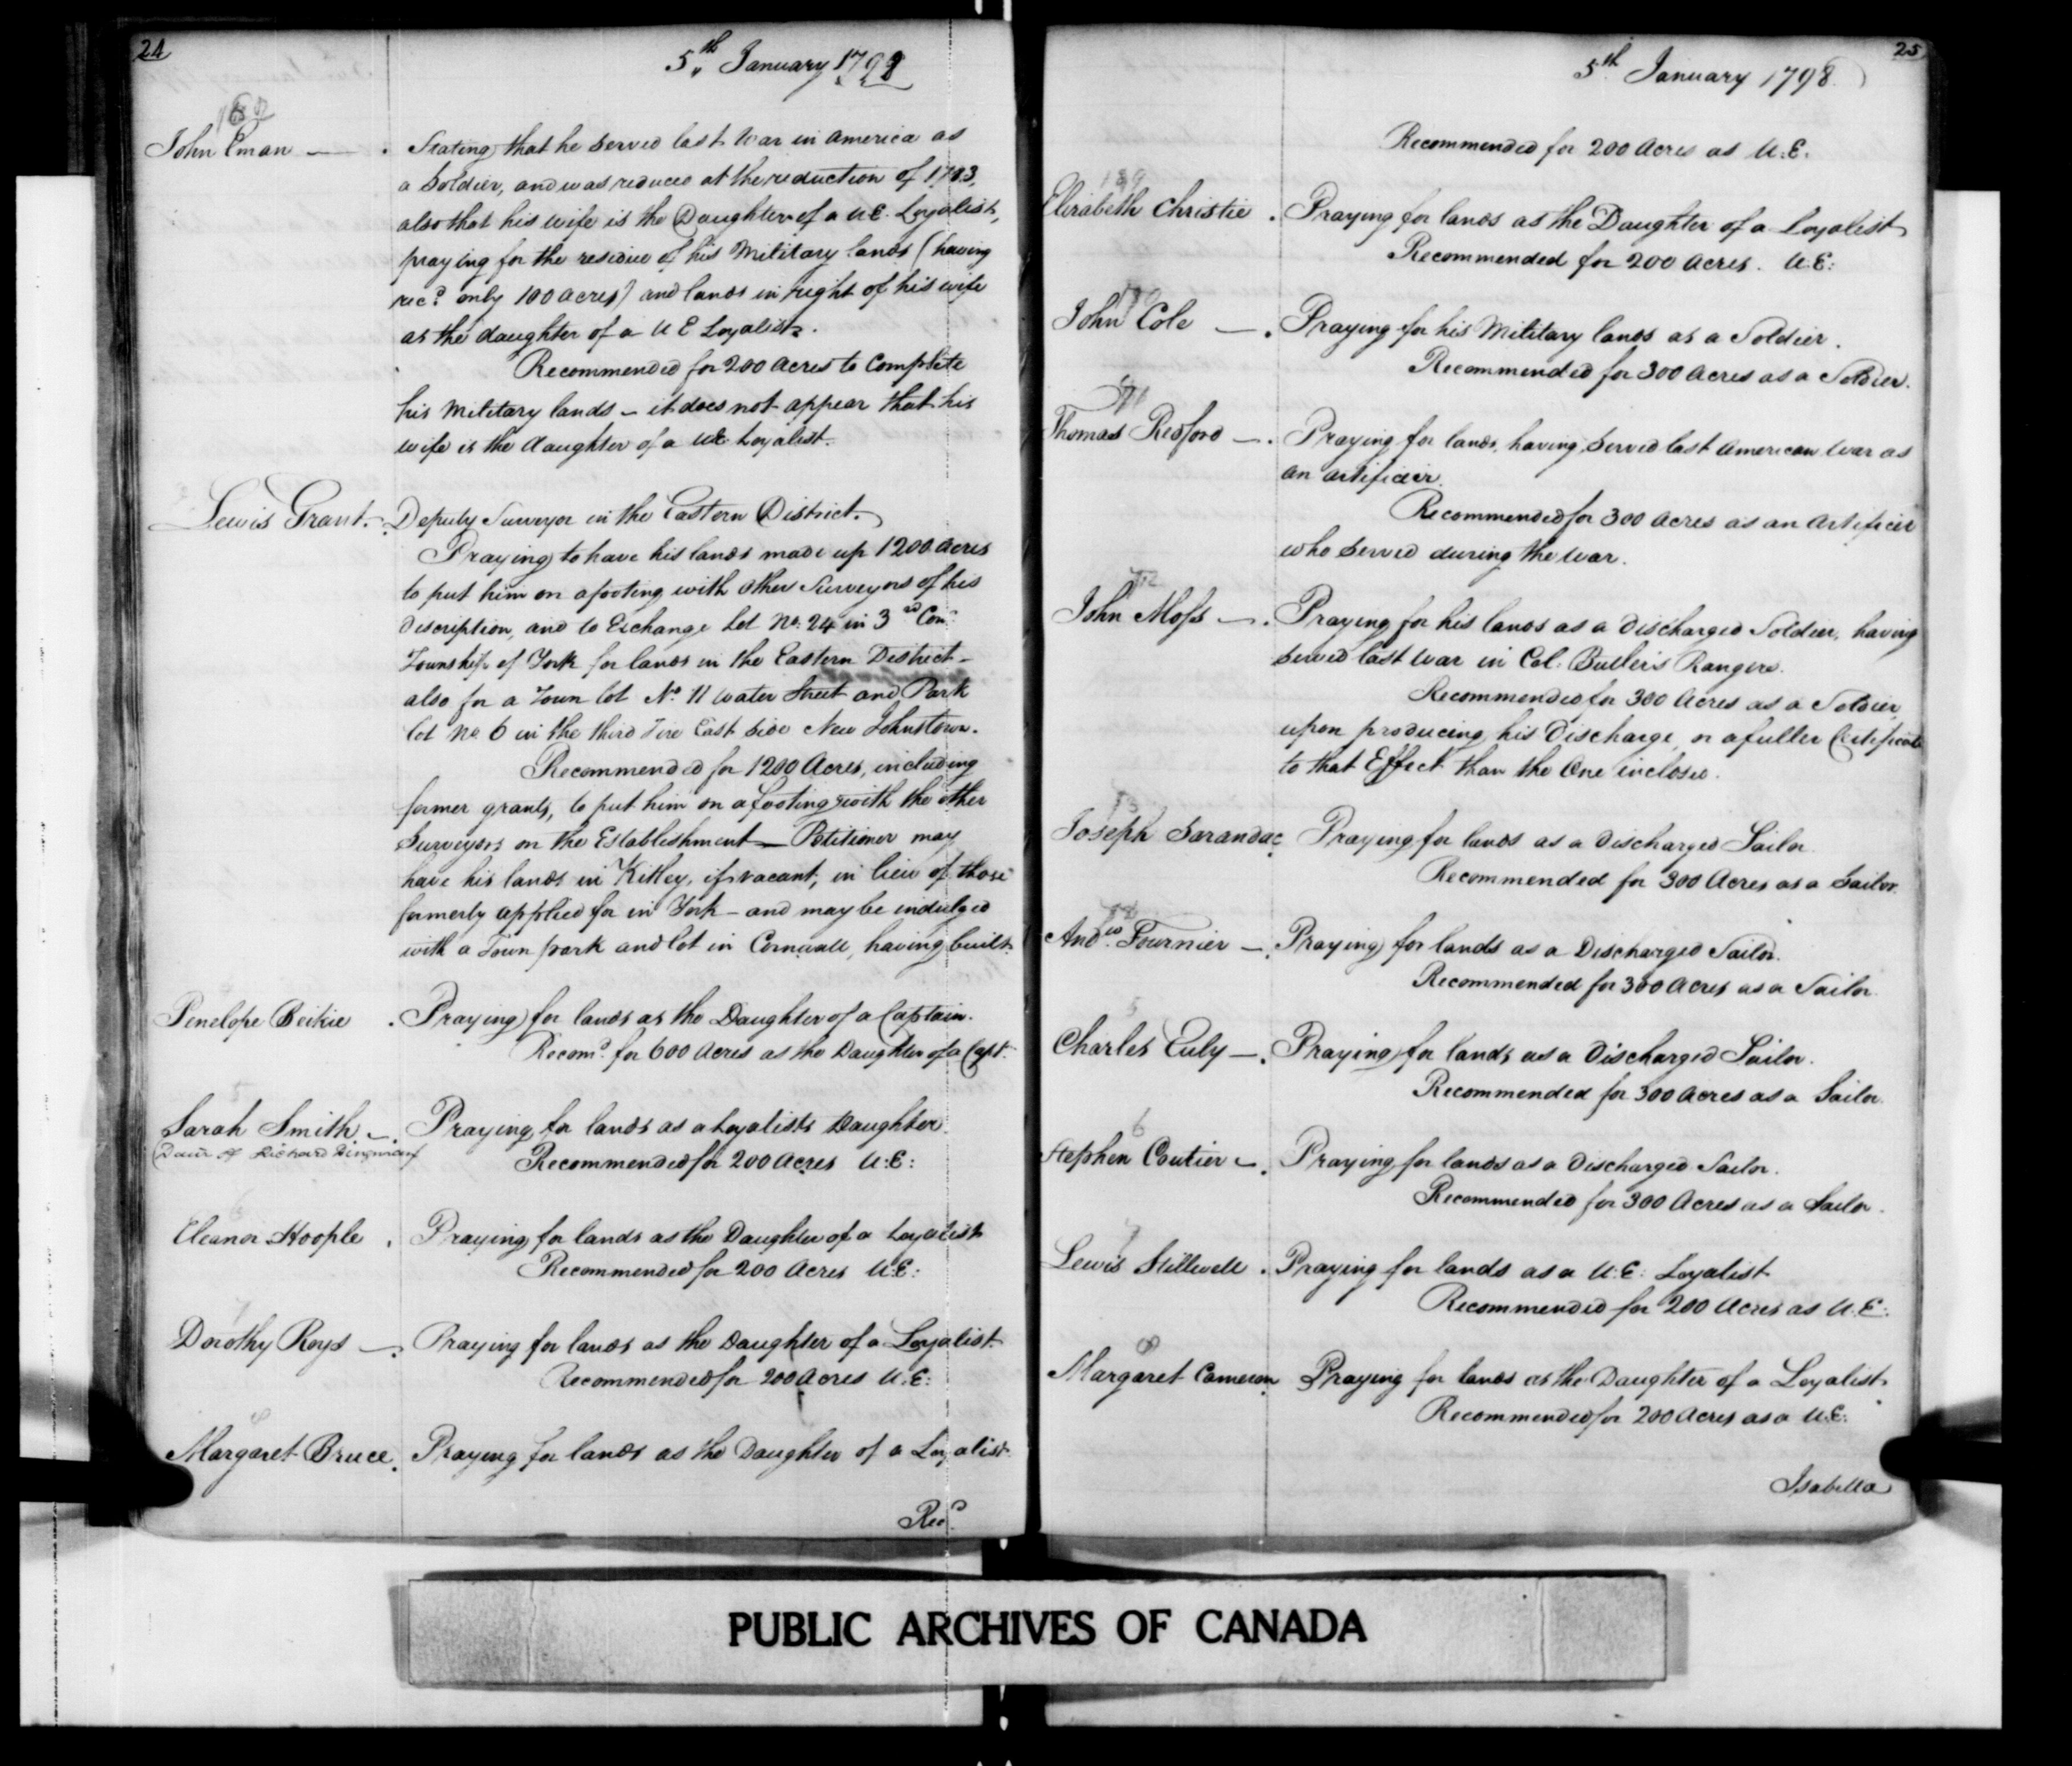 24
5th January 1798
John Eman — . Stating that he served last War in America as
a Soldier, and was reduced at the reduction of 1783,
also that his wife is the Daughter of a U.E. Loyalist,
praying for the residue of his Military lands (having
recd. only 100 acres) and lands in right of his wife
as the daughter of a U E Loyalist.
Recommended for 200 Acres to Complete
his Military lands – it does not appear that his
wife is the daughter of a UE Loyalist.
Lewis Grant. Deputy Surveyor in the Eastern District.
Praying to have his lands made up 1200 Acres
to put him on a footing with other Surveyors of his
discription, and to Exchange Lot No. 24 in 3rd Con.
Township of York for lands in the Eastern District –
also for a Town lot No. 11 Water Street and Park
lot No. 6 in the third Tire East side New Johnstown.
Recommended for 1200 Acres, including
former grants, to put him on a footing with the other
Surveyors on the Establishment – Petitioner may
have his lands in Kitley, if vacant, in lieu of those
formerly applied for in York – and may be indulged
with a Town park and lot in Cornwall, having built.
Penelope Beikie . Praying for lands as the Daughter of a Captain.
Recomd. for 600 Acres as the Daughter of a Capt.
Sarah Smith – . Praying for lands as a Loyalists Daughter
(Daur of Richard Dingman)
Recommended for 200 Acres U.E:
Eleanor Hoople . Praying for lands as the Daughter of a Loyalist
Recommended for 200 Acres U.E:
Dorothy Roys – . Praying for lands as the Daughter of a Loyalist.
Recommended for 200 Acres U.E:
Margaret Bruce . Praying for lands as the Daughter of a Loyalist
Recd.
25
5th January 1798
Recommended for 200 Acres as U.E.
189
Elizabeth Christie . Praying for lands as the Daughter of a Loyalist
Recommended for 200 Acres. U.E:
John Cole – . Praying for his Military lands as a Soldier.
Recommended for 300 Acres as a Soldier.
Thomas Redford – . Praying for lands, having served last American War as
an artificer.
Recommended for 300 Acres as an Artificer
who served during the war.
John Moss – . Praying for his lands as a discharged Soldier, having
served last War in Col. Butler's Rangers.
Recommended for 300 Acres as a Soldier
upon producing his Discharge, or a fuller Certificate
to that Effect than the One inclosed.
Joseph Sarandac Praying for lands as a discharged Sailor.
Recommended for 300 Acres as a Sailor.
Andw. Fournier – . Praying for lands as a Discharged Sailor.
Recommended for 300 Acres as a Sailor.
5
Charles Euly – . Praying for lands as a Discharged Sailor.
Recommended for 300 Acres as a Sailor.
6
Stephen Coutier – . Praying for lands as a Discharged Sailor.
Recommended for 300 Acres as a Sailor.
7
Lewis Stillwell . Praying for lands as a U.E: Loyalist
Recommended for 200 Acres as U.E:
8
Margaret Cameron Praying for lands as the Daughter of a Loyalist.
Recommended for 200 Acres as a U.E:
Isabella
PUBLIC ARCHIVES OF CANADA